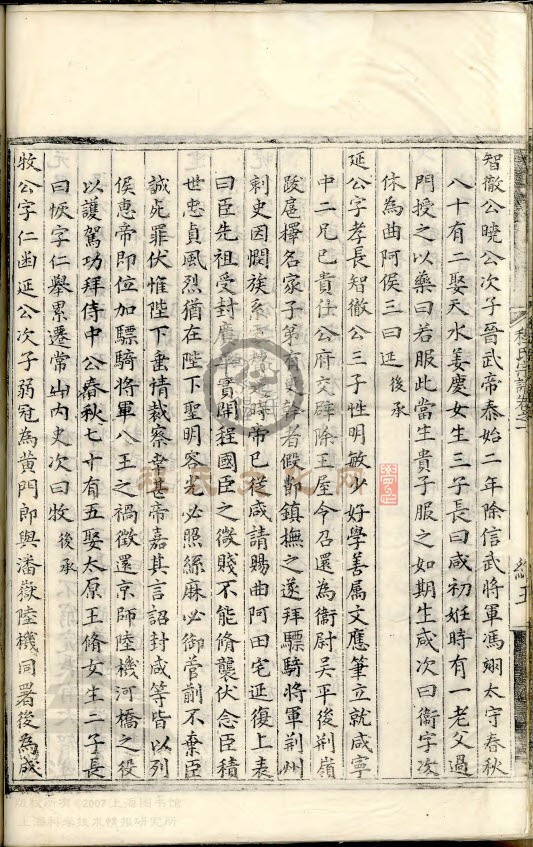 智徹公曉公次子晉武帝泰始二年除信武將軍馮翊太守春秋
八十有二娶天水姜慶女生三子長曰咸初妊時有一老父過
門授之以藥曰若服此當生貴子服之如期生咸次曰衞字次
休為曲阿侯三曰延後承
延公字孝長智徹公三子性明敏少好學善属文應筆立就咸寧
中二兄已貴仕公府交辟除王屋令召還為衞尉吳平後荆嶺
陵寇擇名家子第有 幹者假節鎮撫之遂拜驃騎將軍荆州
刺史因憫族系 時帝已從咸請賜曲阿田宅延復上表
曰臣先祖受封廣平實開程國臣之微賤不能脩襲伏念臣積
世忠貞風烈猶在陛下聖明容光必照絲麻必御菅蒯不棄臣
誠死罪伏惟陛下垂情裁察幸甚帝嘉其言詔封咸等皆以列
侯惠帝即位加驃騎將軍八王之禍徵還京師陸機河橋之役
以護駕功拜侍中公春秋七十有五娶太原王脩女生二子長
曰恢字仁舉累遷常山内史次曰牧後承
牧公字仁 延公次子弱冠為黄門郎與潘嶽陸機同署後為成
程氏宗譜卷之一
版权所有©2007上海图书馆
上海科学技术情报研究所
程氏文化网